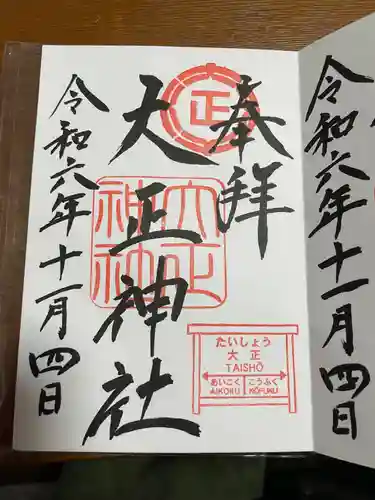 奉拝
正
大正神社
大正
神社
令和六年十一月四日
たいしょう
大正
TAISHŌ
あいこく こうふく
AIKOKU KŌFUKU
令和六年十一月四日